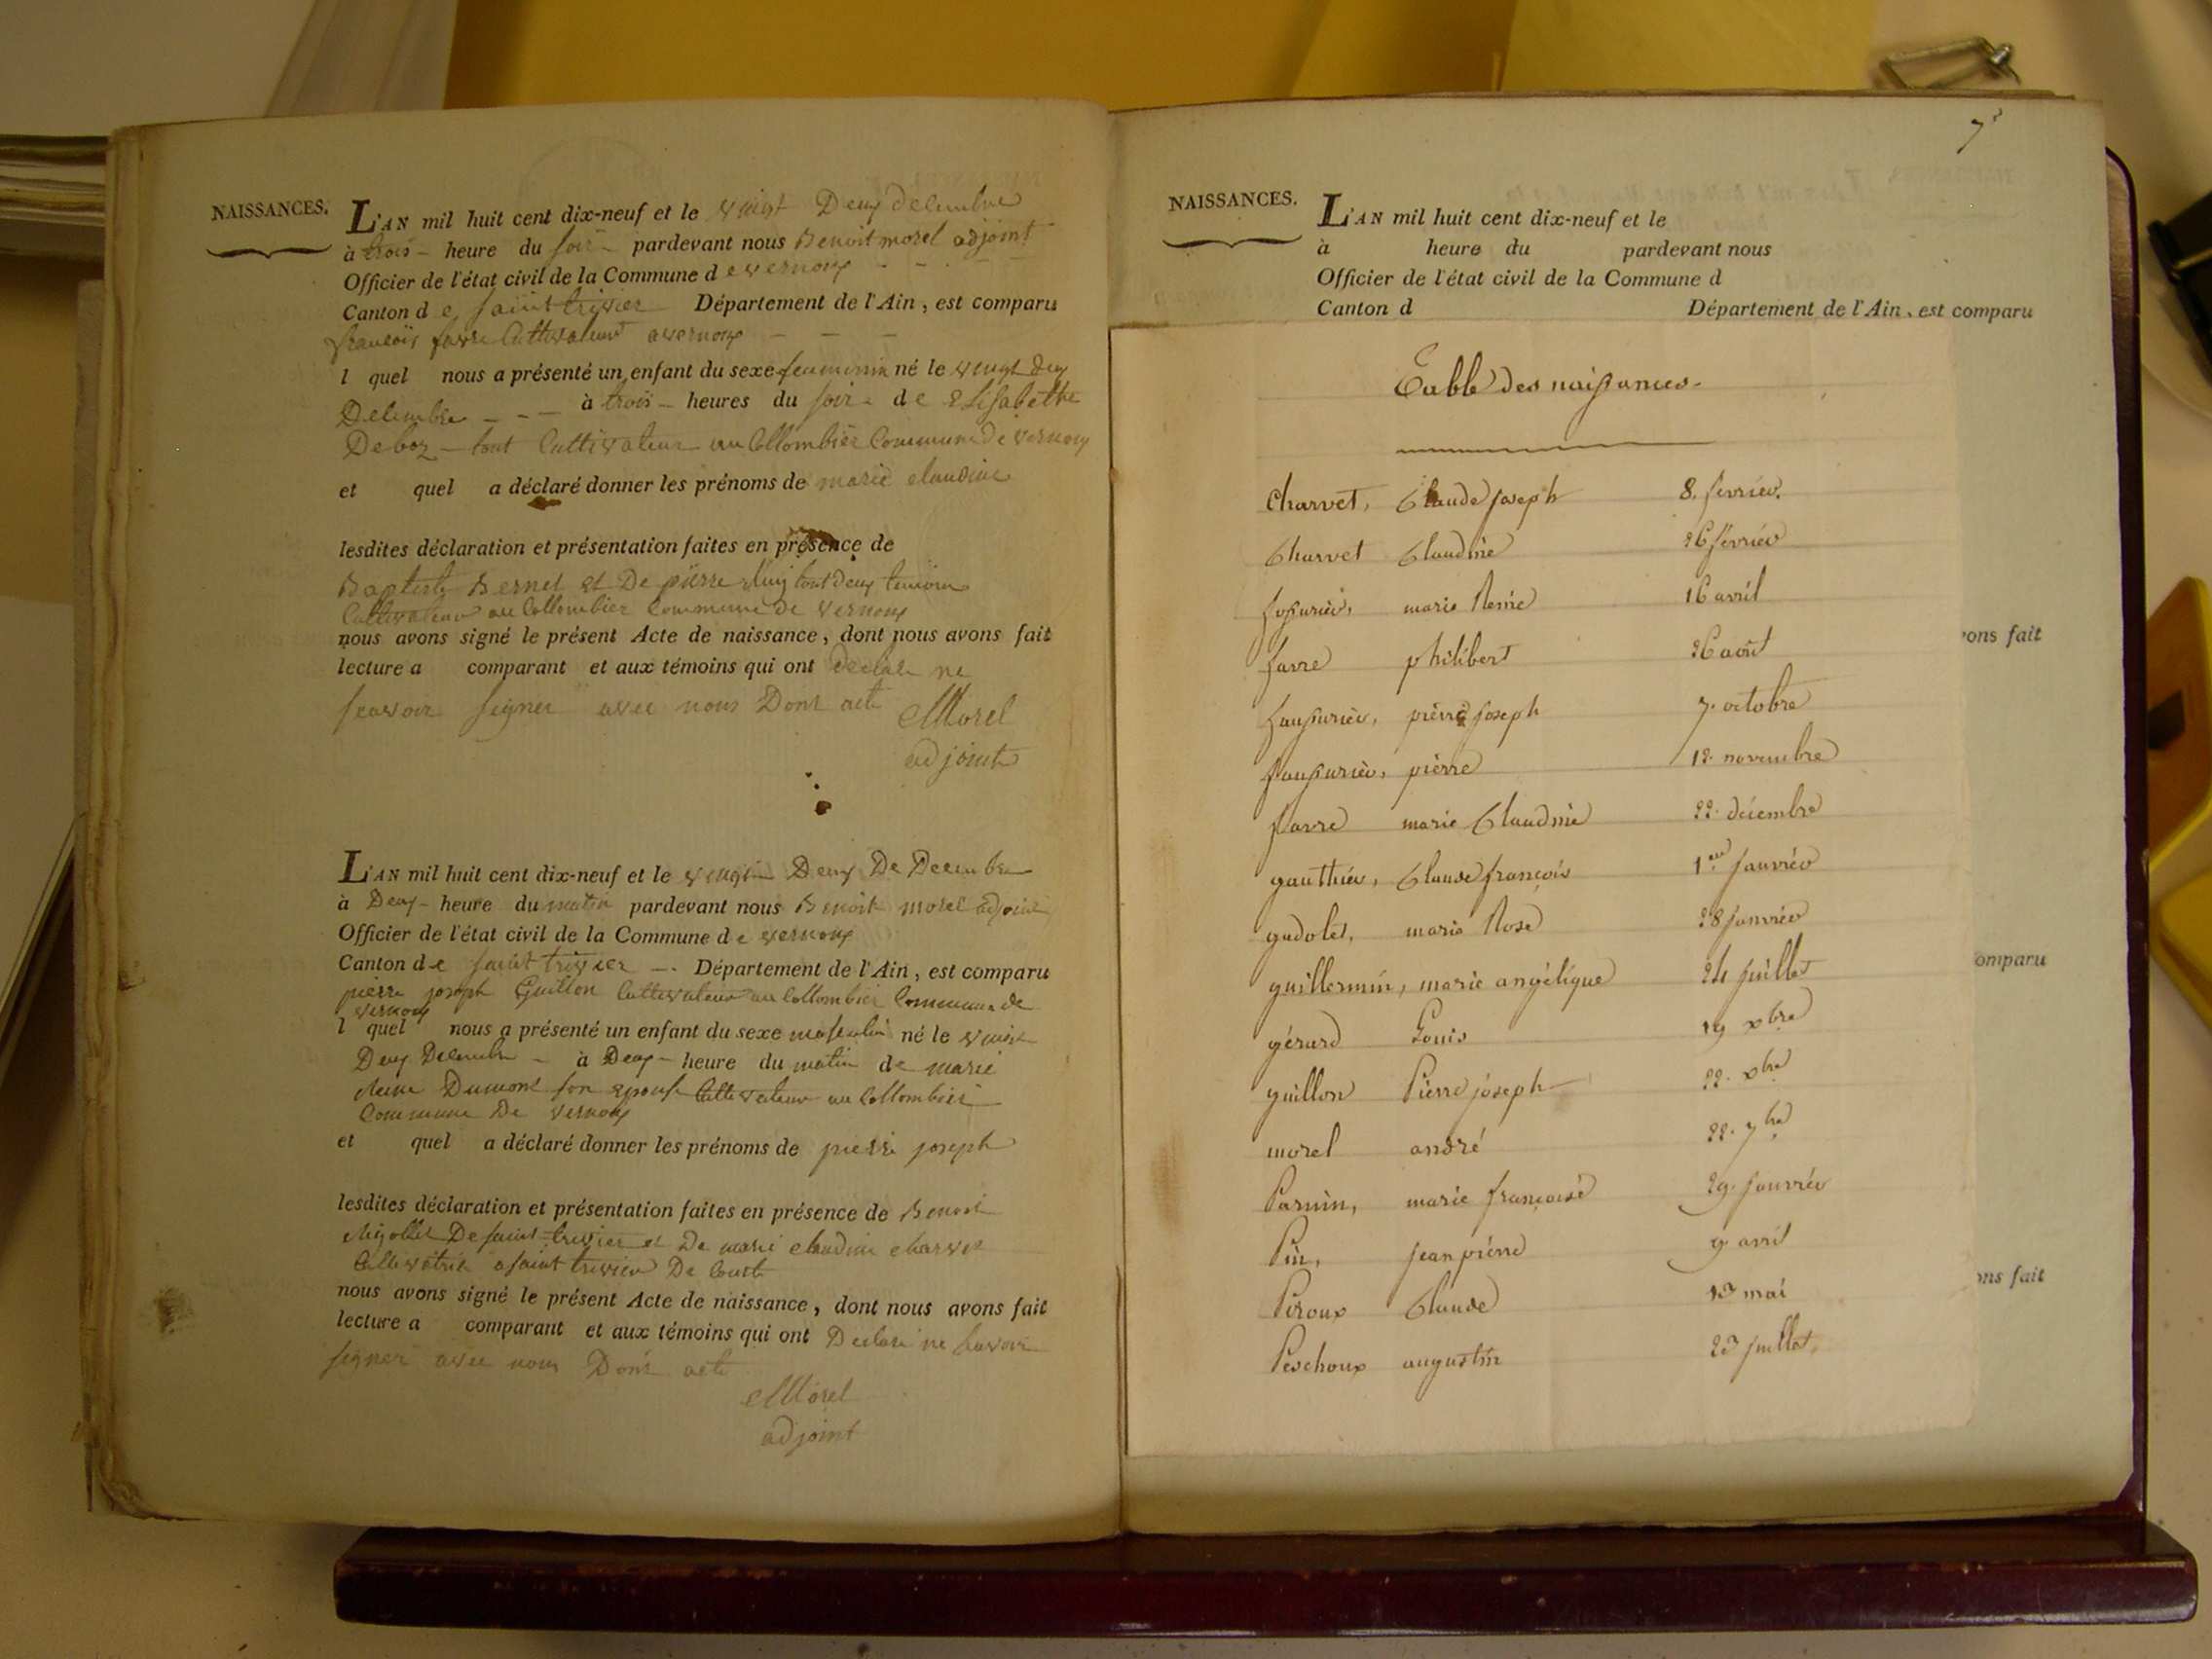 NAISSANCES.
L'AN mil huit cent dix-neuf et le vingt Deux decembre
à trois - heure du soir - pardevant nous Benoit morel adjoint
Officier de l'état civil de la Commune de vernoux
Canton de saint trivier Département de l'Ain, est comparu
françois favre Cultivateur a vernoux
l quel nous a présenté un enfant du sexe feminin né le vingt deux
Decembre à trois - heures du soir - de Elisabethe
Deboz - tout Cultivateur au Collombier Commune de vernoux
et quel a déclaré donner les prénoms de marie claudine
lesdites déclaration et présentation faites en présence de
Baptiste Bernet et De pierre tout deux temoin
Cultivateur au Collombier Commune De vernoux
nous avons signé le présent Acte de naissance, dont nous avons fait
lecture a comparant et aux témoins qui ont declaré ne
scavoir signer avec nous Dont acte
Morel
adjoint
L'AN mil huit cent dix-neuf et le vingt Deux De Decembre
à Deux - heure du matin pardevant nous Benoit morel adjoint
Officier de l'état civil de la Commune de vernoux
Canton de saint trivier -. Département de l'Ain, est comparu
pierre joseph Guillon Cultivateur au Collombier Commune de
vernoux
l quel nous a présenté un enfant du sexe masculin né le vingt
Deux Decembre - à Deux - heure du matin de marie
Reine Dumont son epouse Cultivateur au Collombier
Commune De vernoux
et quel a déclaré donner les prénoms de pierre joseph
lesdites déclaration et présentation faites en présence de Benoit
De saint trivier et De marie claudine charvet
Cultivatrice a saint trivier De Courte
nous avons signé le présent Acte de naissance, dont nous avons fait
lecture a comparant et aux témoins qui ont Declaré ne savoir
signer avec nous Dont acte
Morel
adjoint
NAISSANCES.
L'AN mil huit cent dix-neuf et le
à heure du pardevant nous
Officier de l'état civil de la Commune d
Canton d Département de l'Ain, est comparu
Table des naissances.
Charvet, Claude Joseph 8. fevrier.
Charvet Claudine 26 fevrier
marie Reine 16 avril
favre philibert 26 août
pierre joseph 7. octobre
pierre 12. novembre
favre marie Claudine 22. décembre
gauthier, Claude françois 1.er janvier
gudolet, marie Rose 28 janvier
guillermin, marie angélique 24 juillet
gérard Louis 19 xbre
guillon Pierre joseph 22. xbre
morel andré 22. 7bre
Parnin, marie françoise 29. janvier
Pin, jean pierre 9 avril
Piroux Claude 13 mai
Peschoux augustin 23 juillet.
ons fait
omparu
ns fait